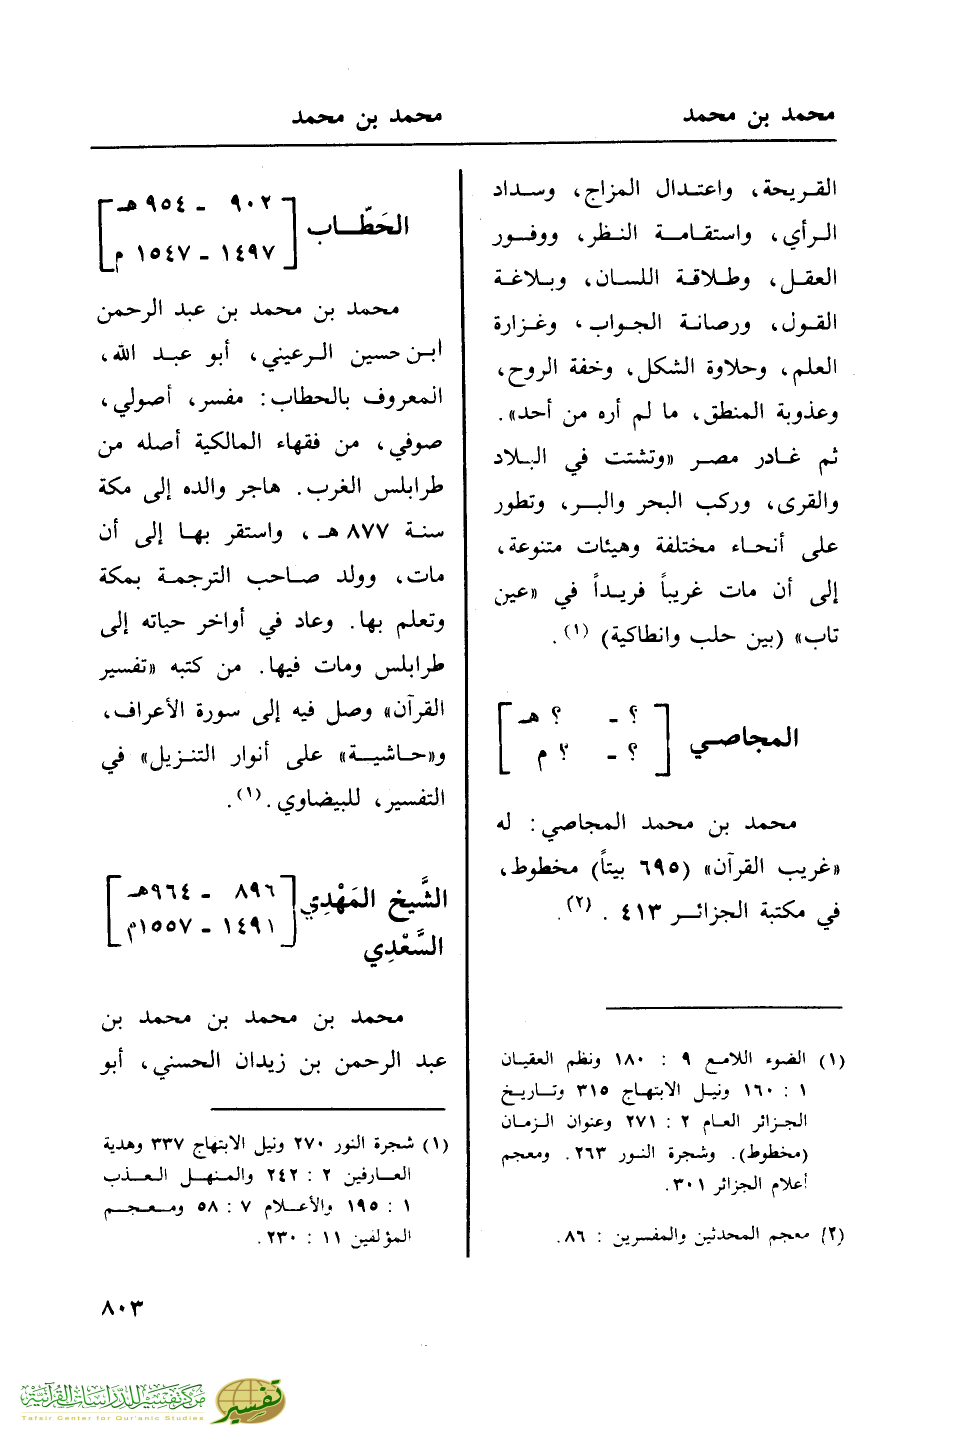 محمد بن محمد
محمد بن محمد
القريحة، واعتدال المزاج، وسداد
الرأي، واستقامة النظر، ووفور
العقل، وطلاقة اللسان، وبلاغة
القول، ورصانة الجواب، وغزارة
العلم، وحلاوة الشكل، وخفة الروح،
وعذوبة المنطق، ما لم أره من أحد».
ثم غادر مصر «وتشتت في البلاد
والقرى، وركب البحر والبر، وتطور
على أنحاء مختلفة وهيئات متنوعة،
إلى أن مات غريباً فريداً في «عين
تاب» (بين حلب وانطاكية) (١).
المجاصي
[؟ - ؟ هـ
؟ - ؟ م]
محمد بن محمد المجاصي: له
«غريب القرآن» (٦٩٥ بيتاً) مخطوط،
في مكتبة الجزائر ٤١٣ . (٢).
(١) الضوء اللامع ٩ : ١٨٠ ونظم العقيان
١ : ١٦٠ ونيل الابتهاج ٣١٥ وتاريخ
الجزائر العام ٢ : ٢٧١ وعنوان الزمان
(مخطوط). وشجرة النور ٢٦٣. ومعجم
أعلام الجزائر ٣٠١.
(٢) معجم المحدثين والمفسرين : ٨٦.
الحَطّاب
[٩٠٢ - ٩٥٤ هـ
١٤٩٧ - ١٥٤٧ م]
محمد بن محمد بن عبد الرحمن
ابن حسين الرعيني، أبو عبد الله،
المعروف بالحطاب: مفسر، أصولي،
صوفي، من فقهاء المالكية أصله من
طرابلس الغرب. هاجر والده إلى مكة
سنة ٨٧٧ هـ، واستقر بها إلى أن
مات، وولد صاحب الترجمة بمكة
وتعلم بها. وعاد في أواخر حياته إلى
طرابلس ومات فيها. من كتبه «تفسير
القرآن» وصل فيه إلى سورة الأعراف،
و«حاشية» على أنوار التنزيل» في
التفسير، للبيضاوي.(١).
الشَّيخ المَهْدِي
السَّعْدِي
[٨٩٦ - ٩٦٤هـ
١٤٩١ - ١٥٥٧م]
محمد بن محمد بن محمد بن
عبد الرحمن بن زيدان الحسني، أبو
(١) شجرة النور ٢٧٠ ونيل الابتهاج ٣٣٧ وهدية
العارفين ٢ : ٢٤٢ والمنهل العذب
١ : ١٩٥ والأعلام ٧ : ٥٨ ومعجم
المؤلفين ١١ : ٢٣٠.
٨٠٣
مركز تفسير للدراسات القرآنية
Tafsir Center for Qur'anic Studies
تفسير